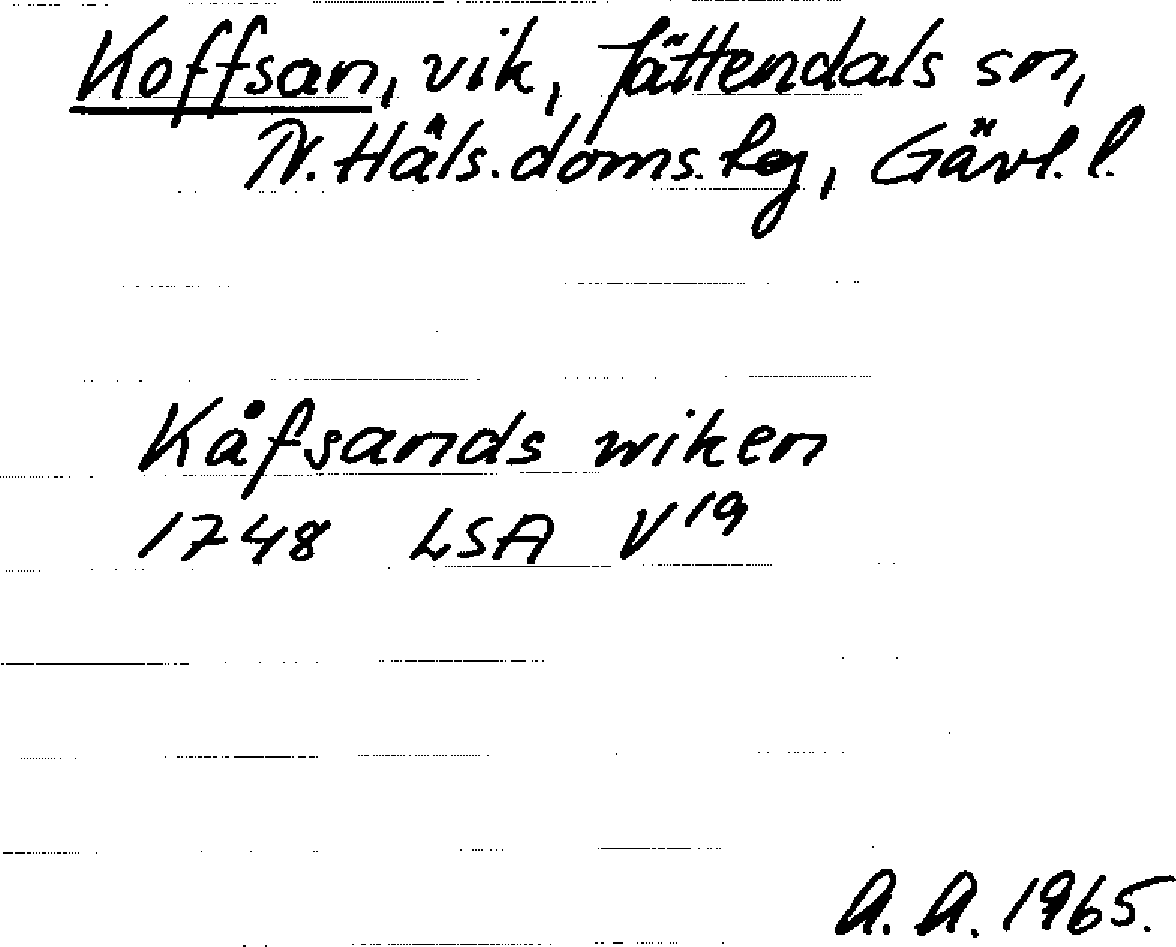 Koffsan, vik, Jättendals sn,
N. Häls. doms. tg, Gävl. l.
Kåfsands wiken
1748 LSA V19
A. A. 1965.